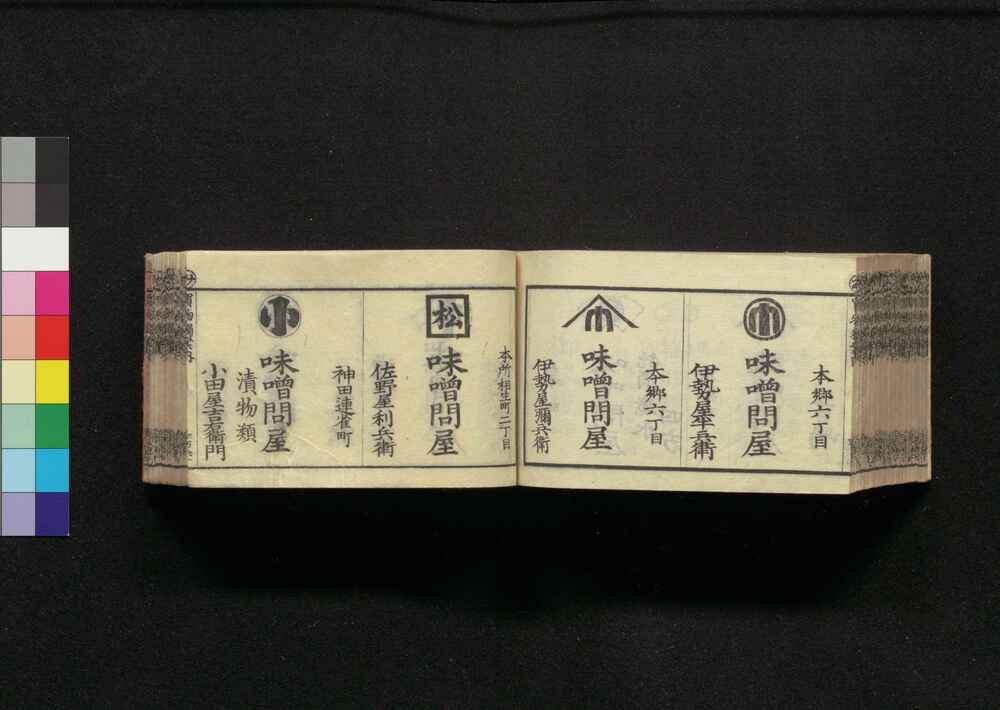 本郷六丁目
味噌問屋
伊勢屋平兵衛
本郷六丁目
味噌問屋
伊勢屋彌兵衛
本所相生町二丁目
松
味噌問屋
佐野屋利兵衛
神田連雀町
小
味噌問屋
漬物類
小田屋吉右衛門